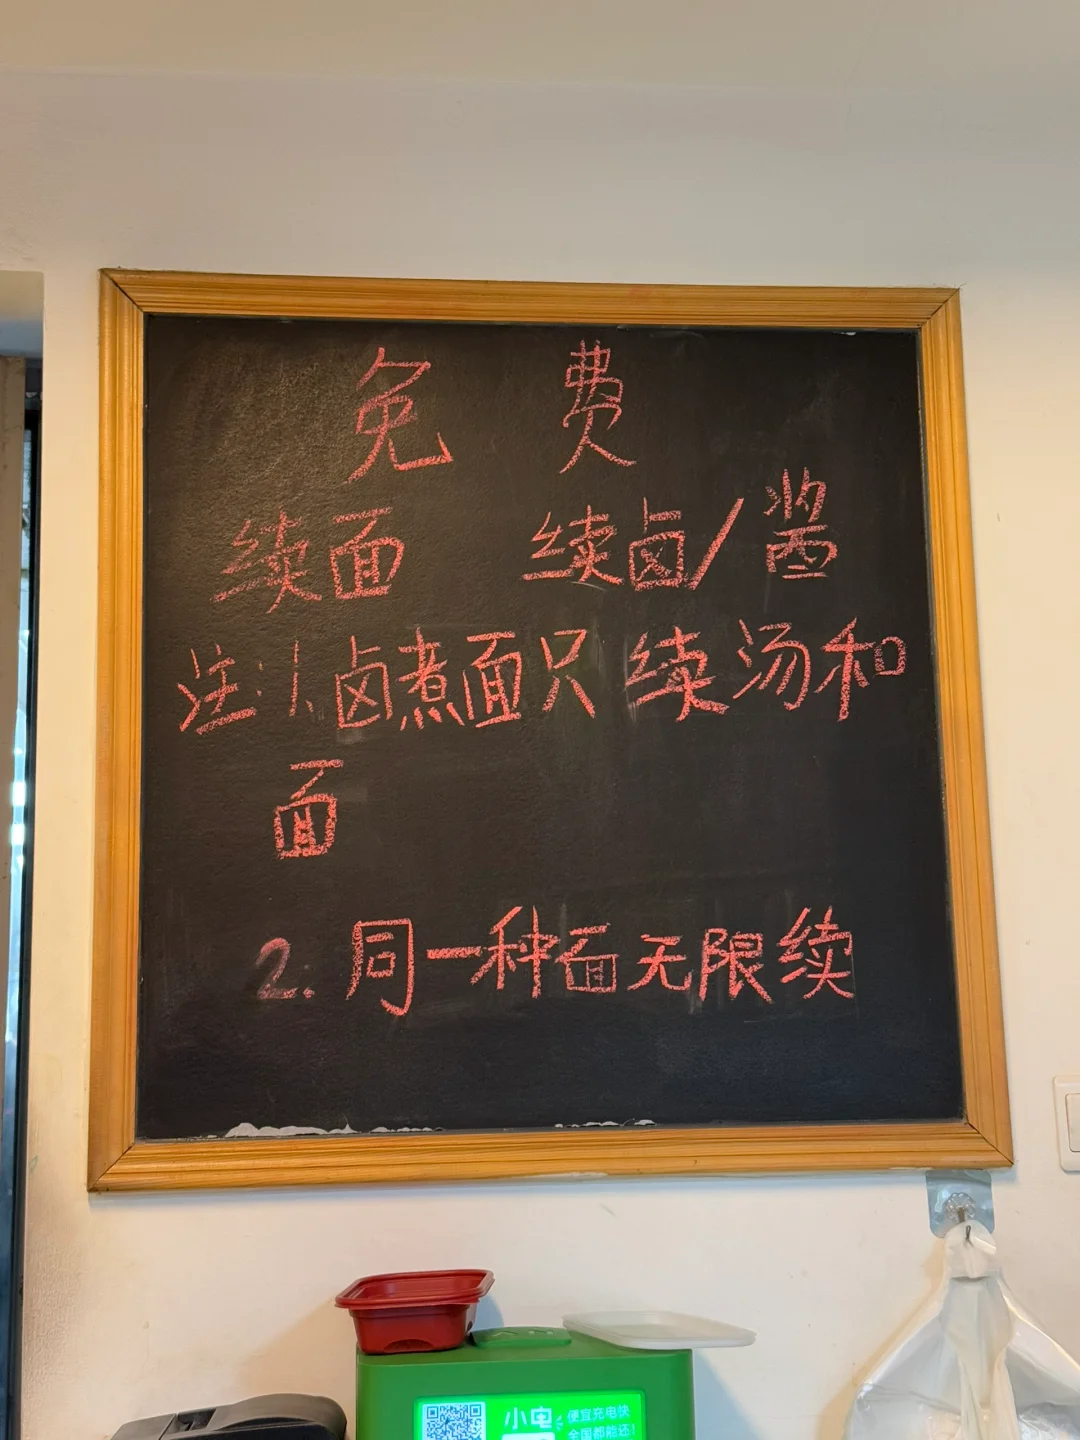 免 费
续面 续卤/酱
注:1.卤煮面只续汤和
面
2.同一种面无限续
小电 便宜充电快
全国都能还!